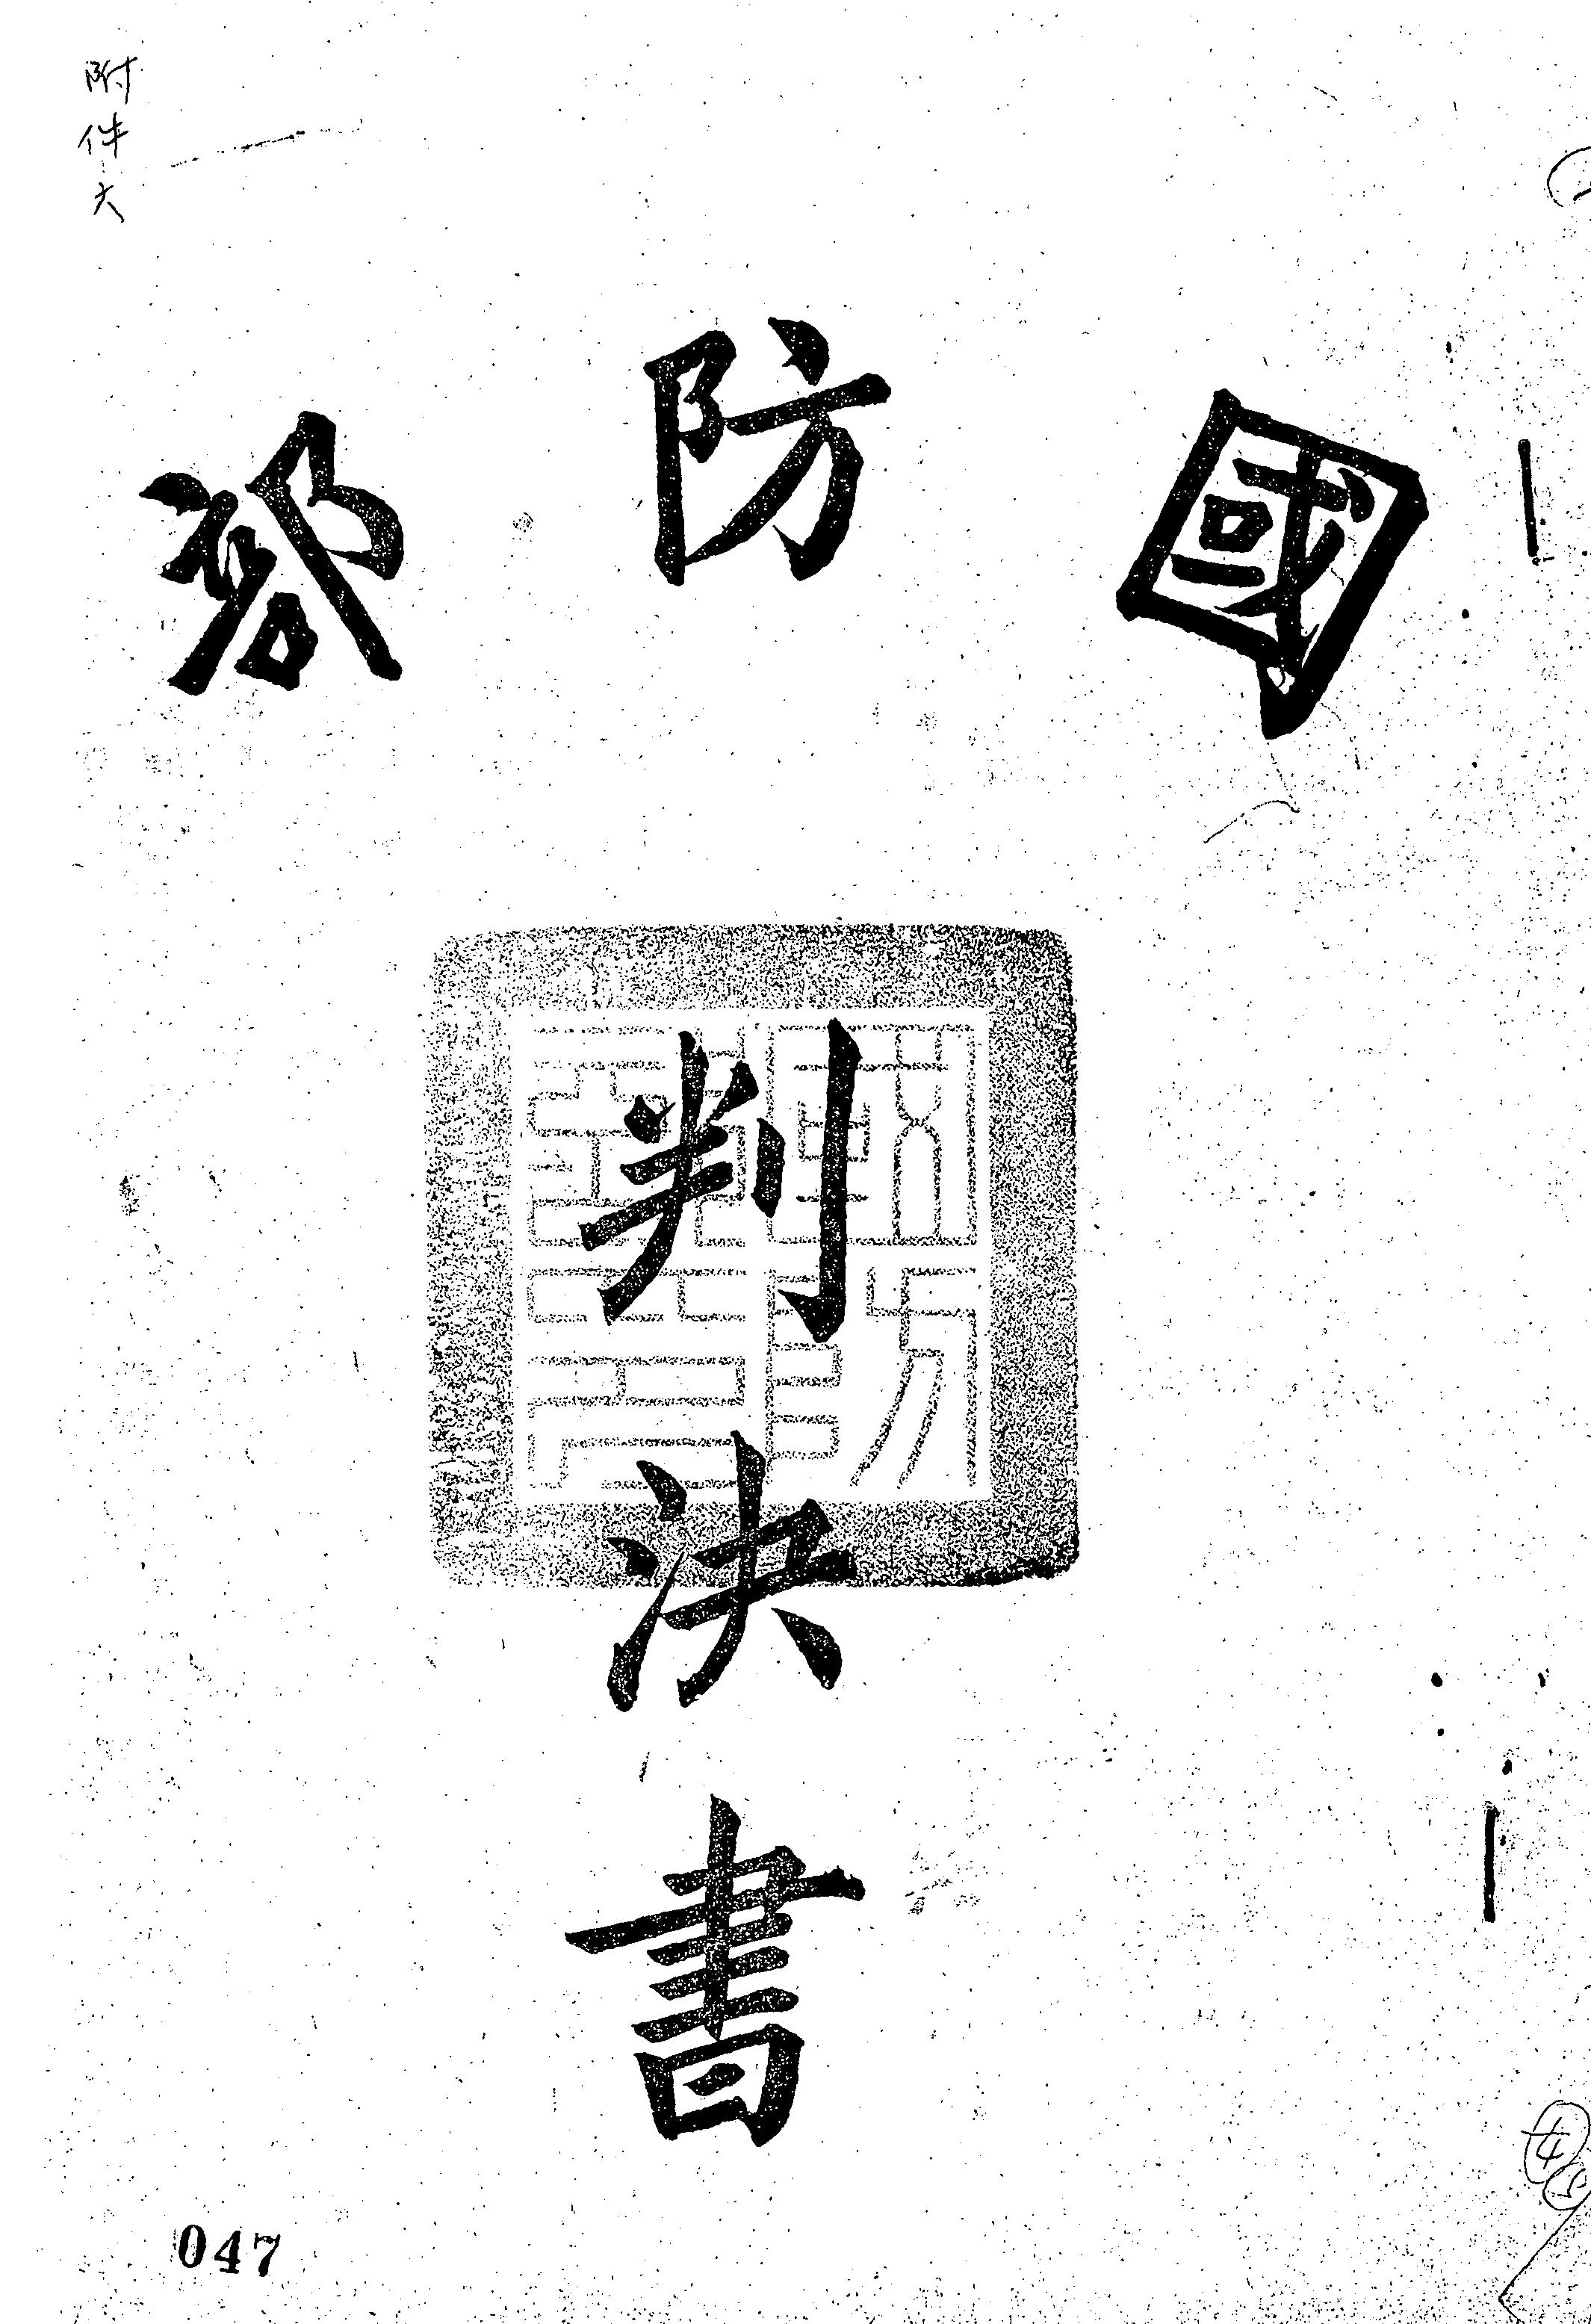 附件六
國防部
判決書
047